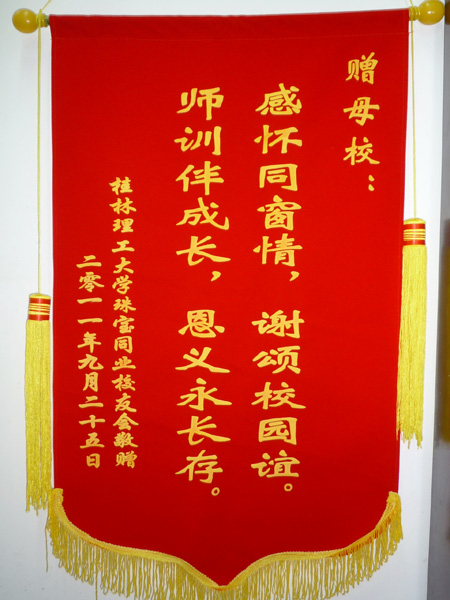 赠母校：
感怀同窗情，谢颂校园谊。
师训伴成长，恩义永长存。
桂林理工大学珠宝同业校友会敬赠
二零一一年九月二十五日